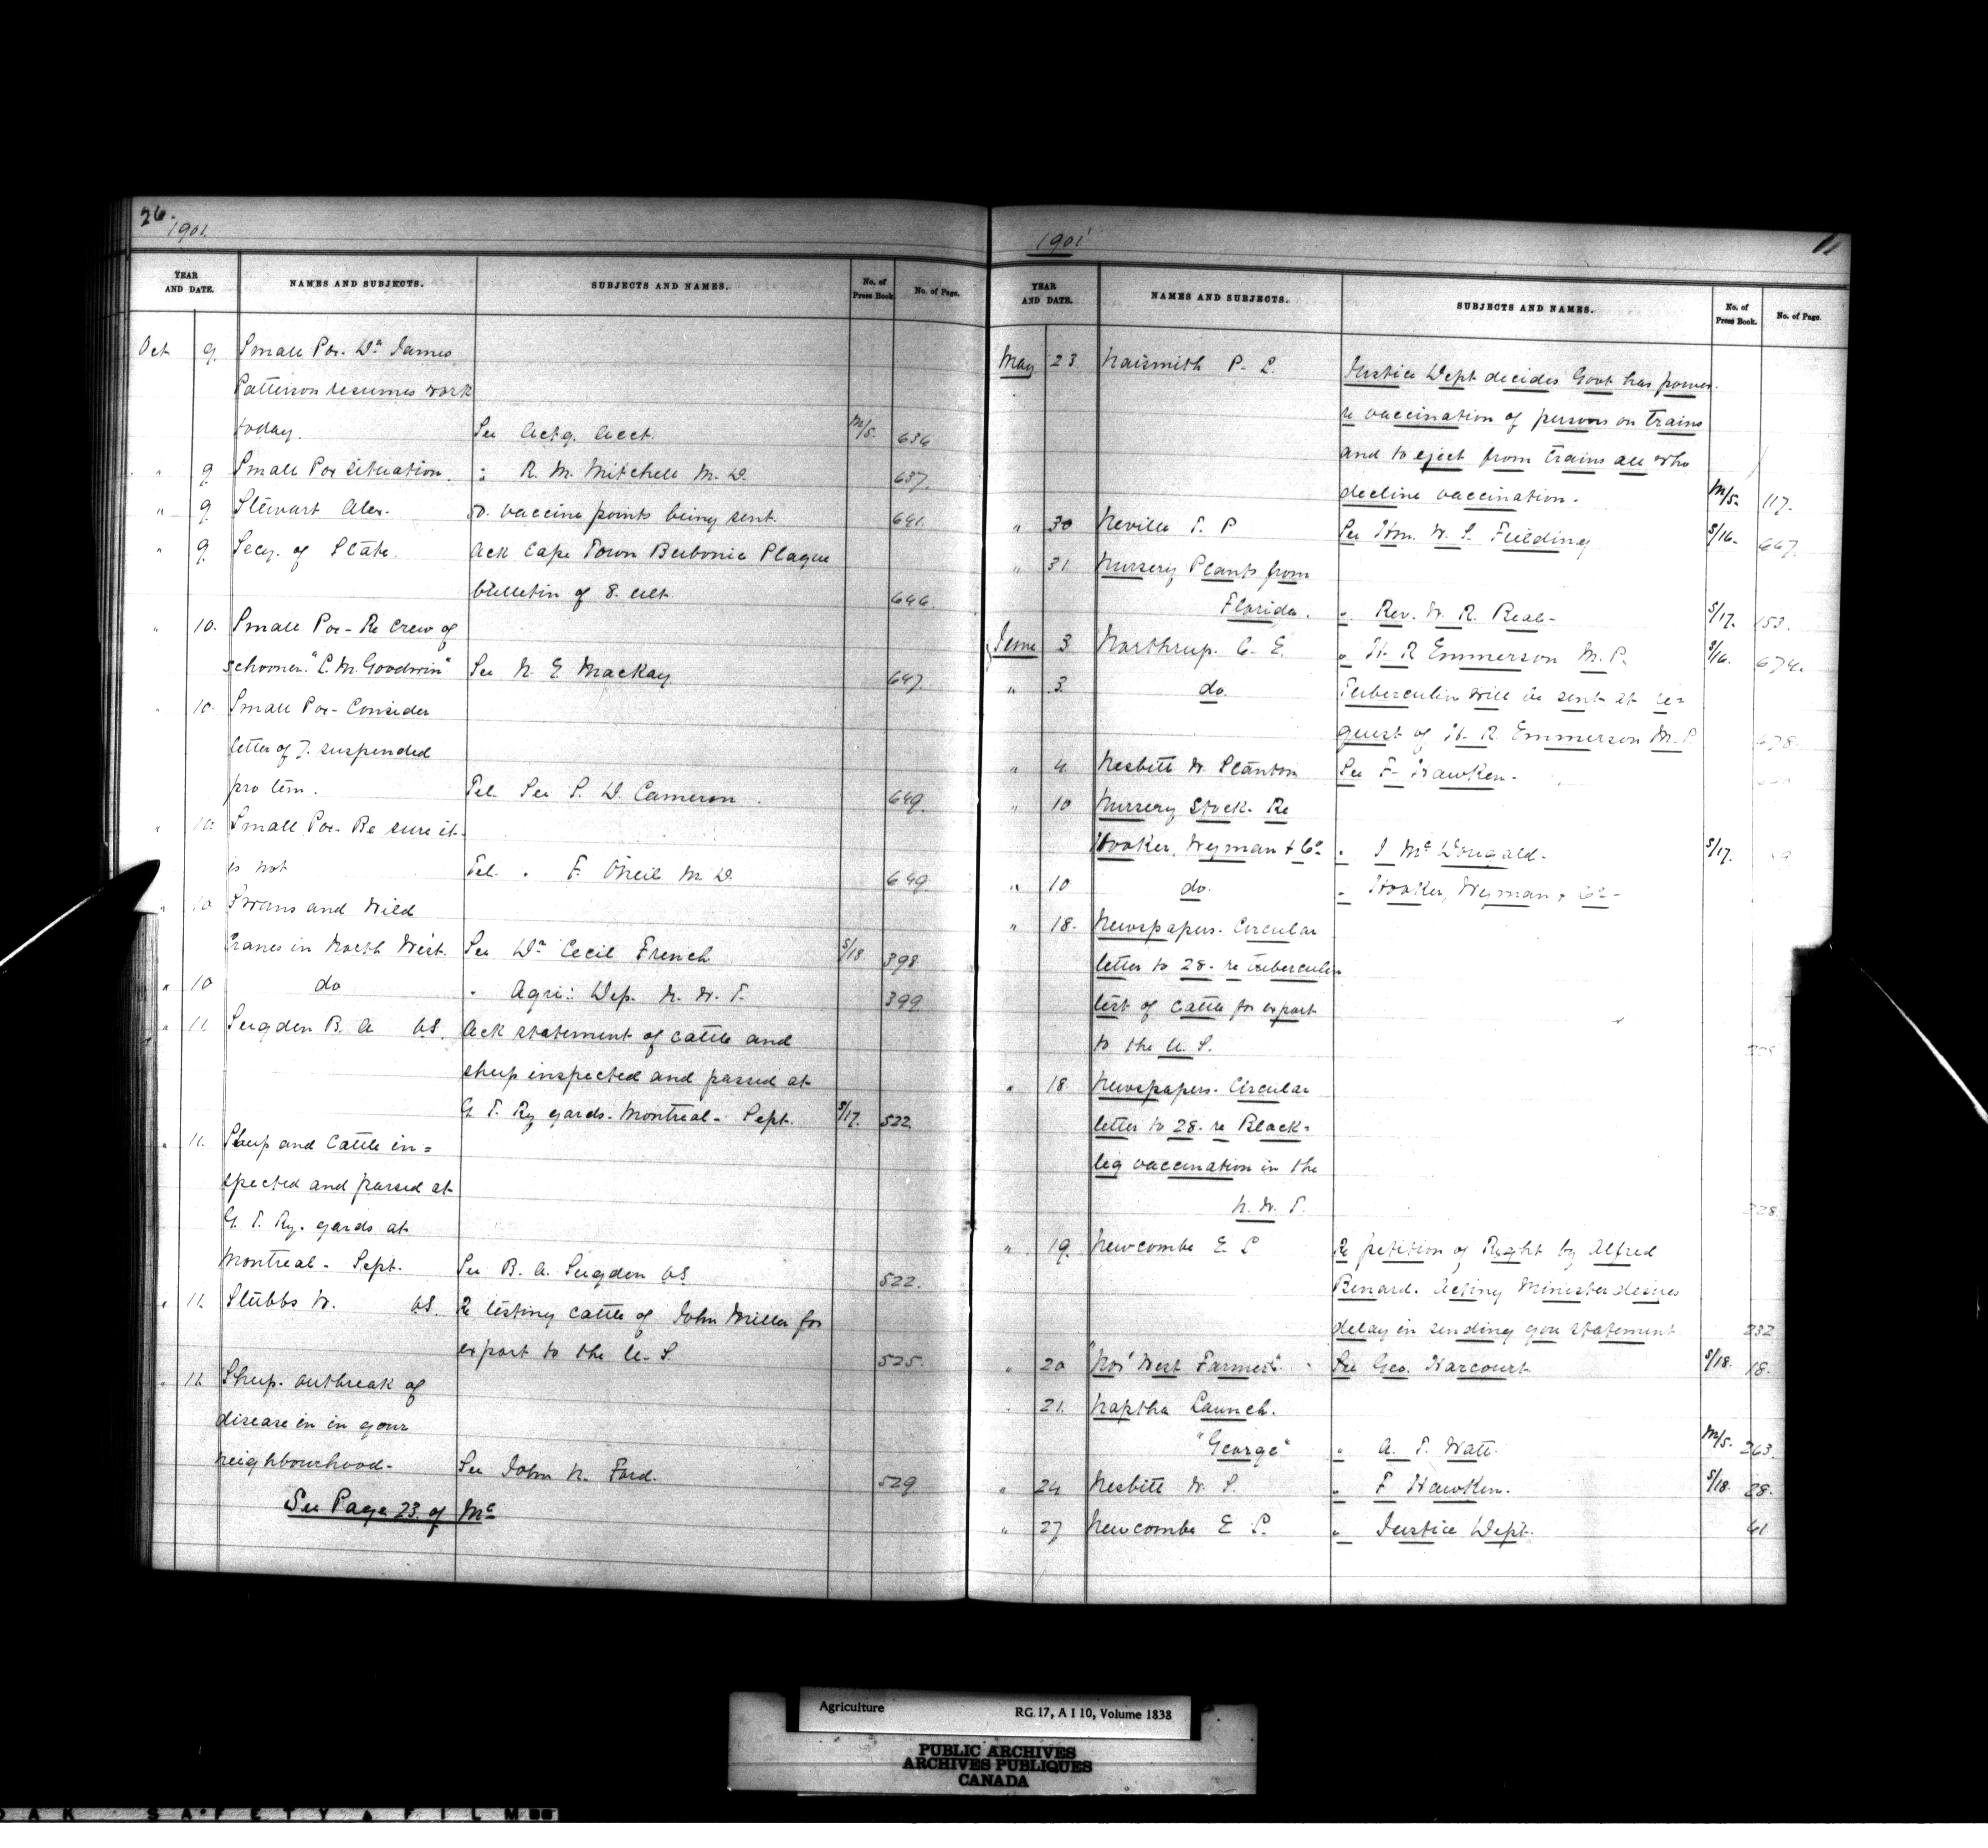 26.
1901.
YEAR AND DATE. NAMES AND SUBJECTS. SUBJECTS AND NAMES. No. of Press Book. No. of Page.
Oct 9. Small Pox. Dr. James
Patterson resumes work
today. See Actg. Acct. M/5. 636
" 9 Small Pox situation. " R. M. Mitchell M. D. 637.
" 9 Stewart Alex. 50. vaccine points being sent. 641.
" 9 Secy. of State. Ack Cape Town Bubonic Plague
bulletin of 8. ult. 646.
" 10. Small Pox - Re Crew of
schooner "L. M. Goodwin" See N. E. Mackay 647.
" 10. Small Pox - Consider
letter of 7. suspended
pro tem. Tel. See S. D. Cameron. 649.
" 10. Small Pox - Be sure it
is not Tel. " F. O'Neil M. D. 649.
" 10 Swans and Wild
Cranes in North West. See Dr Cecil French S/18 398
" 10 do " Agri: Dep. N. W. T. 399
" 11. Sugden B. A. VS. Ack statement of cattle and
sheep inspected and passed at
G. T. Ry yards. Montreal - Sept. S/17. 522.
" 11. Sheep and Cattle in=
spected and passed at
G. T. Ry. yards at
Montreal - Sept. See B. A. Sugden VS 522.
" 11. Stubbs W. VS. Re testing cattle of John Miller for
export to the U. S. 525.
" 11 Sheep. outbreak of
disease in in your
neighbourhood - See John N. Ford. 529
See Page 23 of Mc
1901
11
YEAR AND DATE. NAMES AND SUBJECTS. SUBJECTS AND NAMES. No. of Press Book. No. of Page.
May 23. Naismith P. L. Justice Dept decides Govt has power
re vaccination of persons on trains
and to eject from trains all who
decline vaccination. M/5. 117.
" 30 Neville T. P See Hon. W. S. Fielding S/16. 667.
" 31. Nursery Plants from
Florida. " Rev. W. R. Real - S/17. 153.
June 3 Northrup. C. E. " H. R Emmerson M. P. S/16. 674.
" 3. do. Tuberculin will be sent at re=
quest of H. R. Emmerson M. P. 678.
" 4. Nesbitt W. Stanton See F. Hawken.
" 10 Nursery Stock. Re
Hooker, Wyman & Co. " J. McDougald. S/17.
" 10 do. " Hooker, Wyman & Co -
" 18. Newspapers. Circular
letter to 28. re tuberculin
test of cattle for export
to the U. S.
" 18. Newspapers. Circular
letter to 28. re Black=
leg vaccination in the
N. W. T. 228
" 19. Newcombe E. L Re petition of Right by Alfred
Benard. Acting Minister desires
delay in sending you statement 232
" 20 "Nor' West Farmer". See Geo. Harcourt S/18. 18.
" 21. Naptha Launch.
"George" " A. T. Watt. M/5. 263.
" 24 Nesbitt W. S. " F Hawken. S/18. 28.
" 27 Newcombe E. L. " Justice Dept. 41
Agriculture RG 17, A I 10, Volume 1838
PUBLIC ARCHIVES
ARCHIVES PUBLIQUES
CANADA
SAFETY FILM